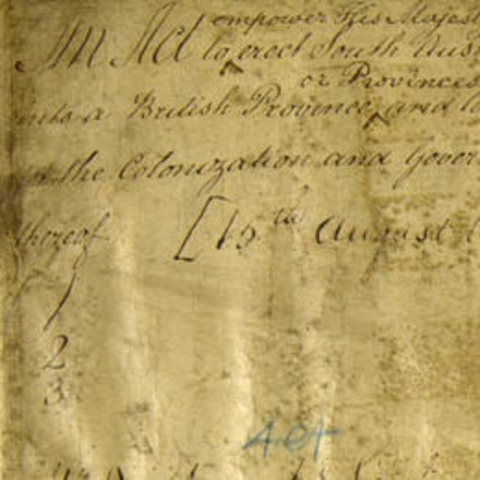 empower His Majest
An Act to erect South Aus
or Provinces
into a British Province and to
for the Colonization and Gover
thereof [15th August 1
1
2
3
Act